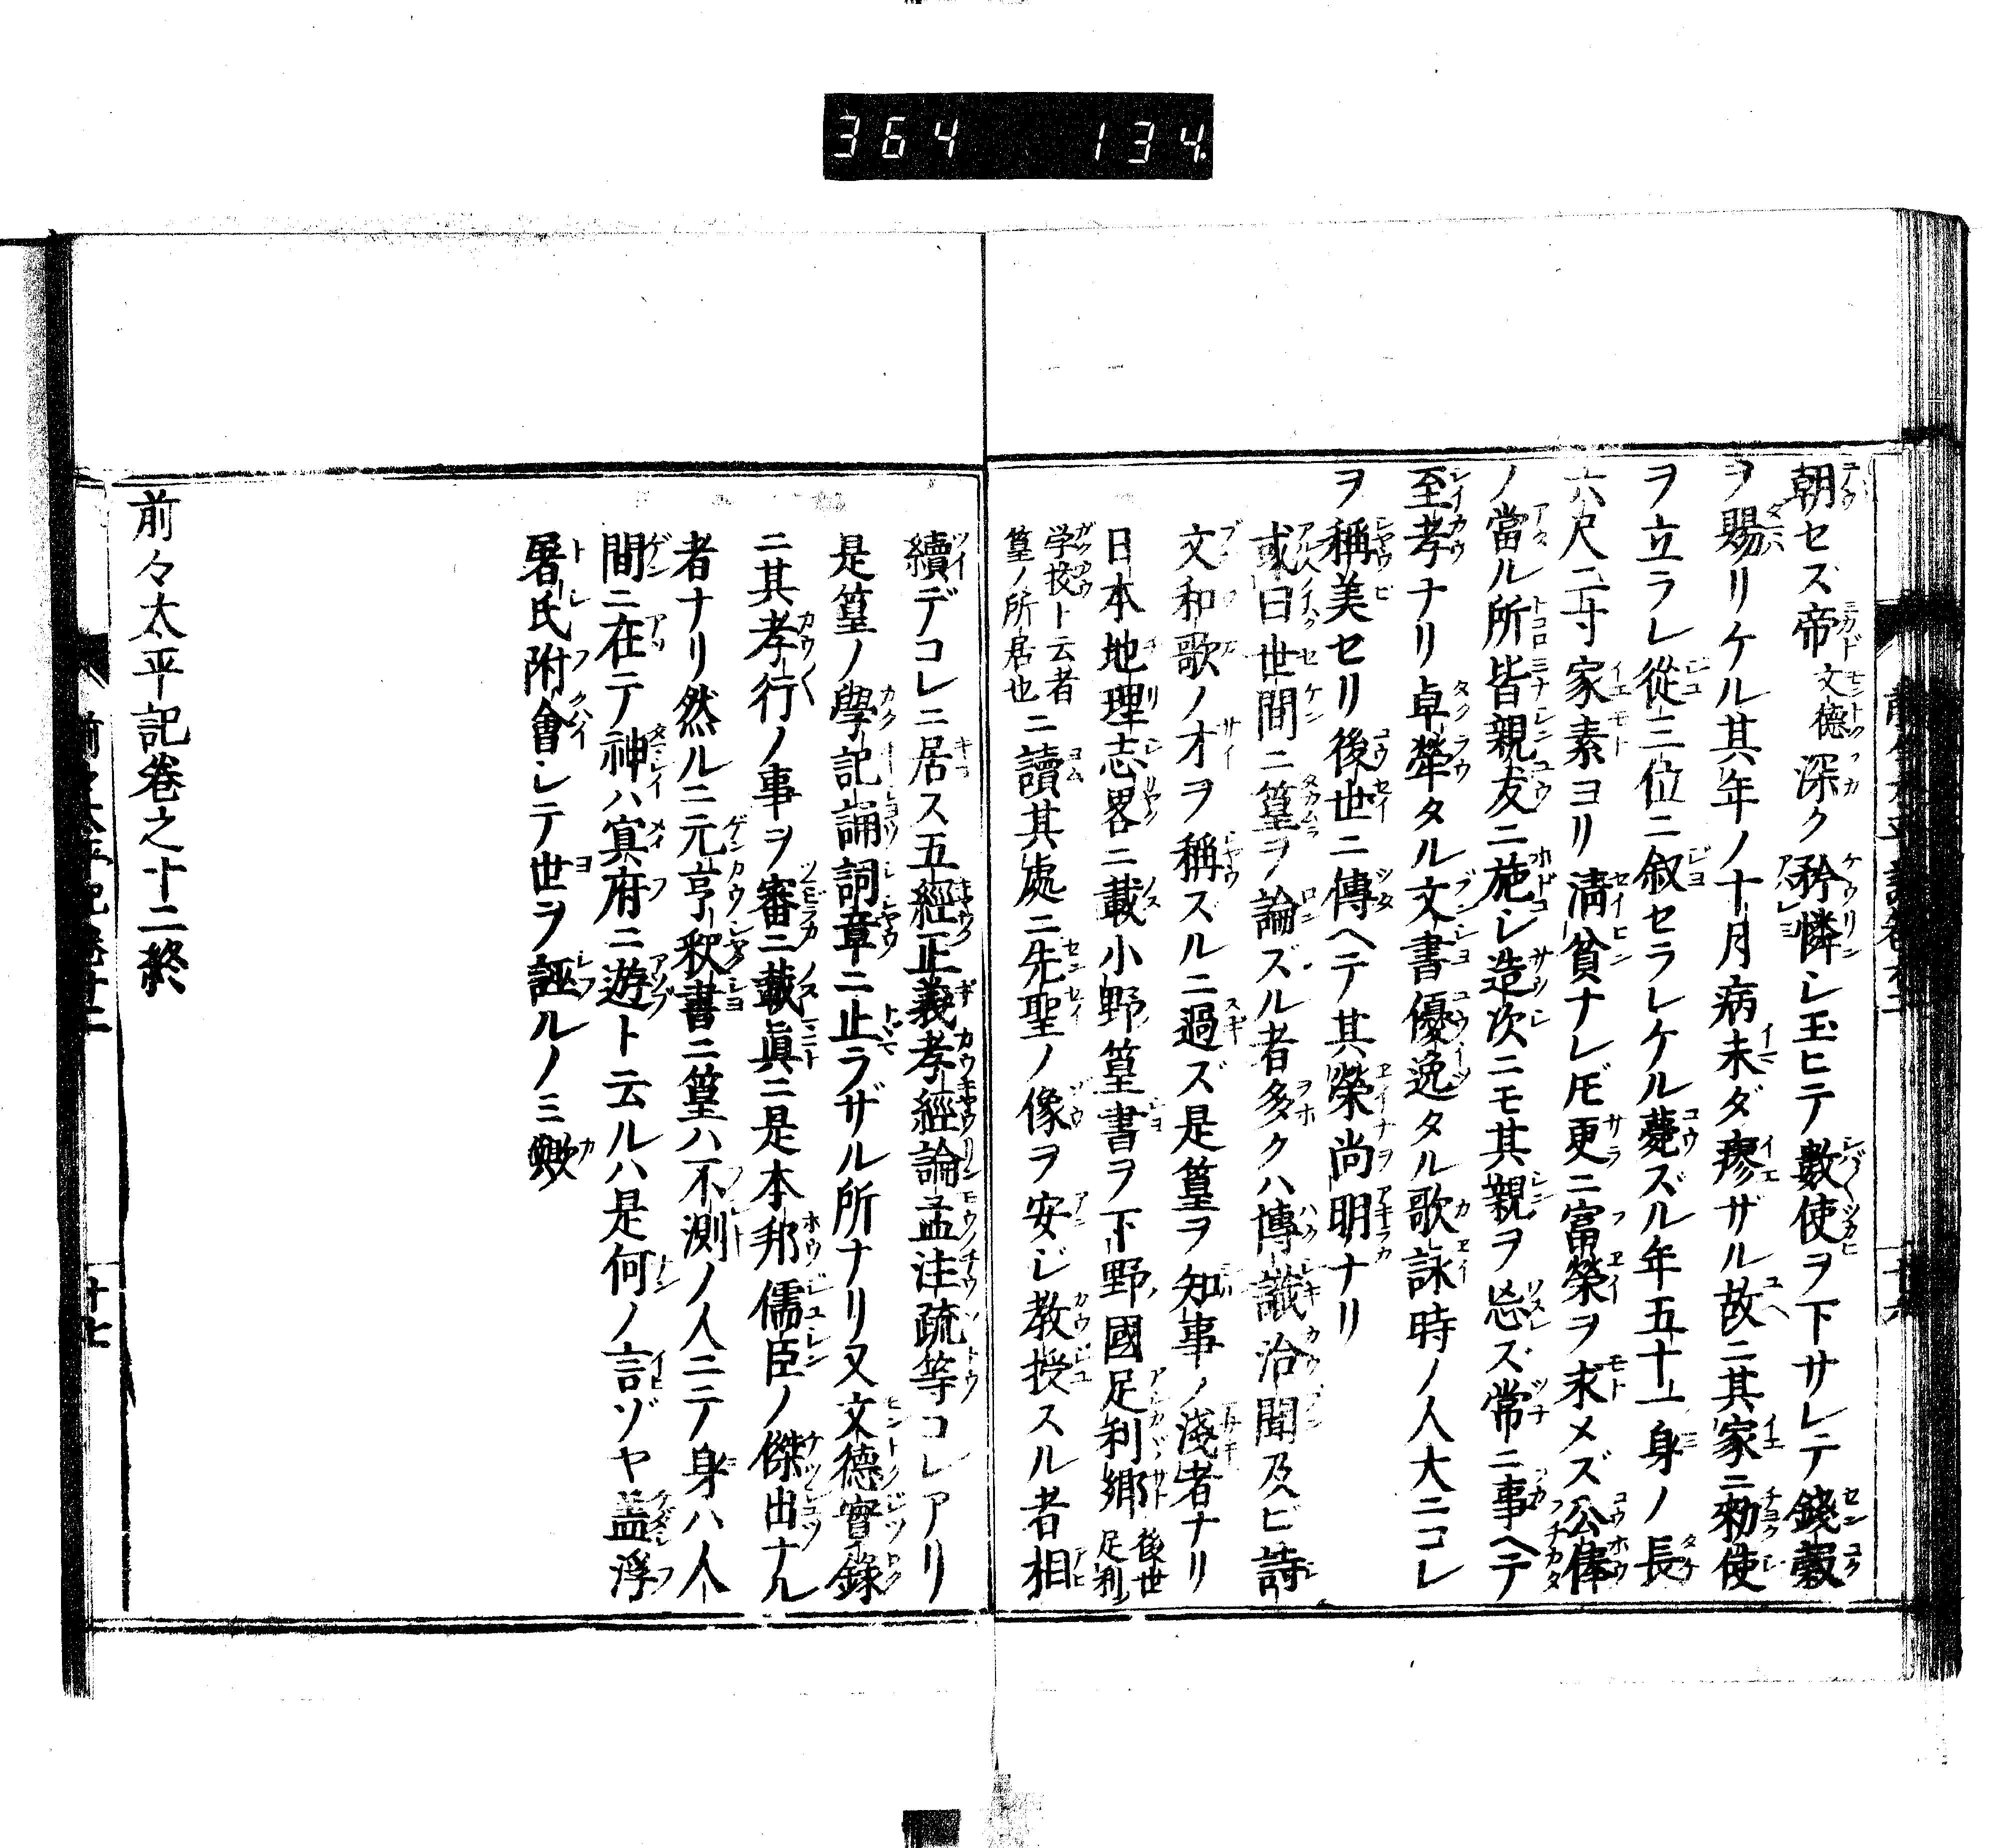 364 134
朝セズ帝文德深ク矜憐シ玉ヒテ數使ヲ下サレテ錢穀
ヲ賜リケル其年ノ十月病未ダ瘳ザル故ニ其家ニ勅使
ヲ立ラレ從三位ニ叙セラレケル薨ズル年五十一身ノ長
六尺二寸家素ヨリ淸貧ナレ𪜈更ニ富榮ヲ求メズ公俸
ノ當ル所皆親友ニ施シ造次ニモ其親ヲ忘ズ常ニ事ヘテ
至孝ナリ卓犖タル文書優逸タル歌詠時ノ人大ニコレ
ヲ稱美セリ後世ニ傳ヘテ其榮尚明ナリ
或曰世間ニ篁ヲ論ズル者多クハ博識洽聞及ヒ詩
文和歌ノオヲ稱スルニ過ズ是篁ヲ知事ノ淺者ナリ
日本地理志畧ニ載小野篁書ヲ下野國足利郷後世足利
学校ト云者篁ノ所居也ニ讀其處ニ先聖ノ像ヲ安ジ教授スル者相
續デコレニ居ス五經正義孝經論孟注疏等コレアリ
是篁ノ學記誦詞章ニ止ラザル所ナリ又文德實錄
ニ其孝行ノ事ヲ審ニ載眞ニ是本邦儒臣ノ傑出ナル
者ナリ然ルニ元亨釈書ニ篁ハ不測ノ人ニテ身ハ人
間ニ在テ神ハ冥府ニ遊ト云ルハ是何ノ言ゾヤ盖浮
屠氏附會シテ世ヲ誣ルノミ歟
前々太平記巻之十二終
前々太平記巻十二
十七